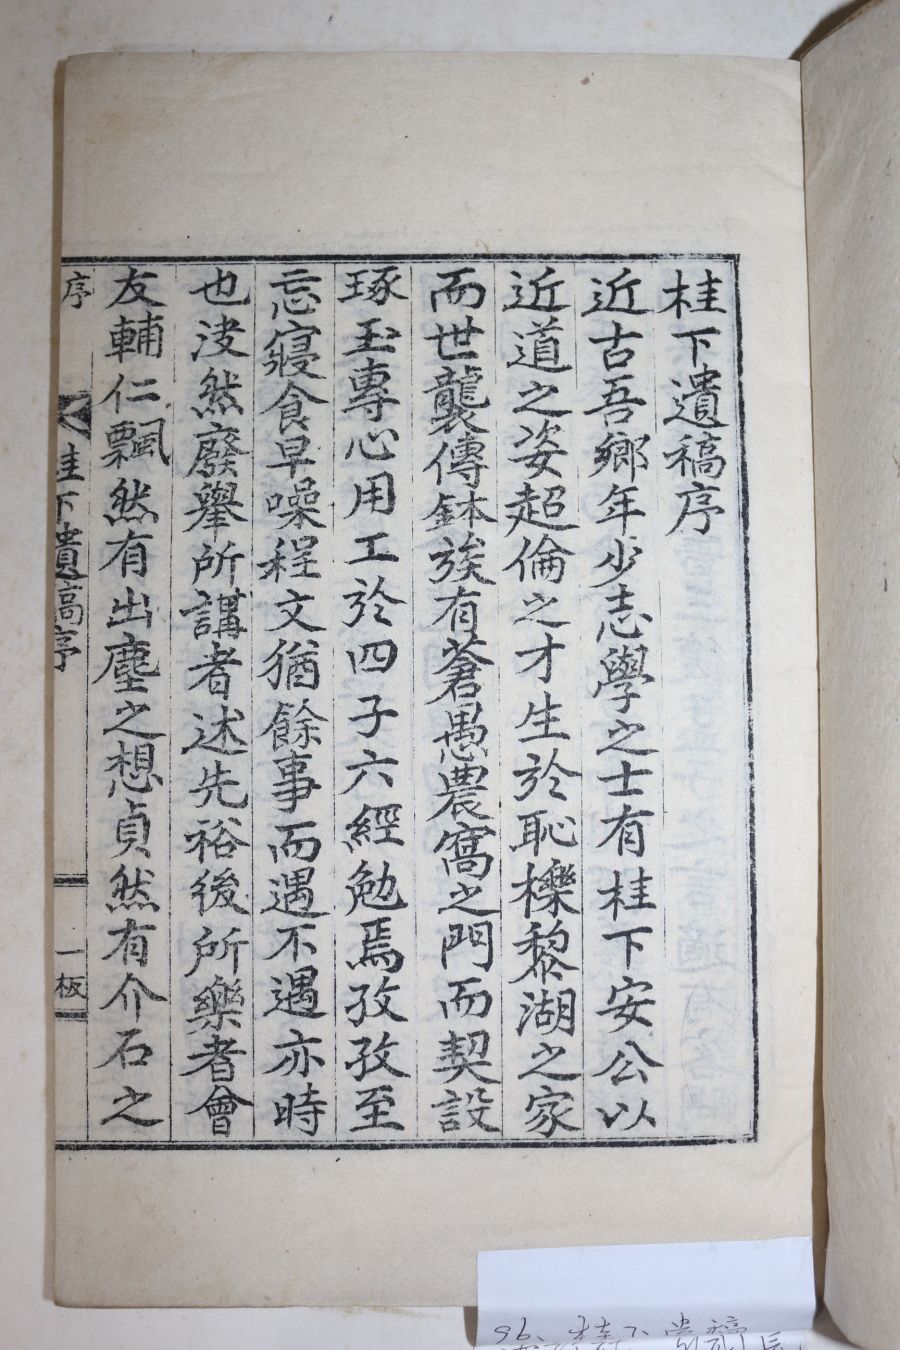 桂下遺稿序
近古吾鄉年少志學之士有桂下安公以
近道之姿超倫之才生於恥櫟黎湖之家
而世襲傳鉢族有蒼愚農窩之門而契設
琢玉專心用工於四子六經勉焉孜孜至
忘寢食早噪程文猶餘事而遇不遇亦時
也決然廢擧所講者述先裕後所樂者會
友輔仁飄然有出塵之想貞然有介石之
序
桂下遺稿序
一板
96. 桂下遺稿